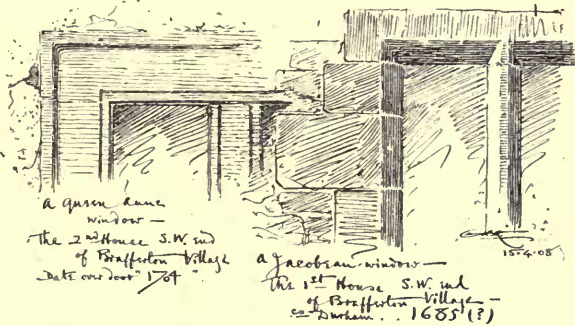 a Queen Anne
window —
The 2nd House S.W. end
of Brafferton Village
Date over door "1704".
15.4.08
a Jacobean window —
The 1st House S.W. end
of Brafferton Village —
co Durham . . 1685 (?)